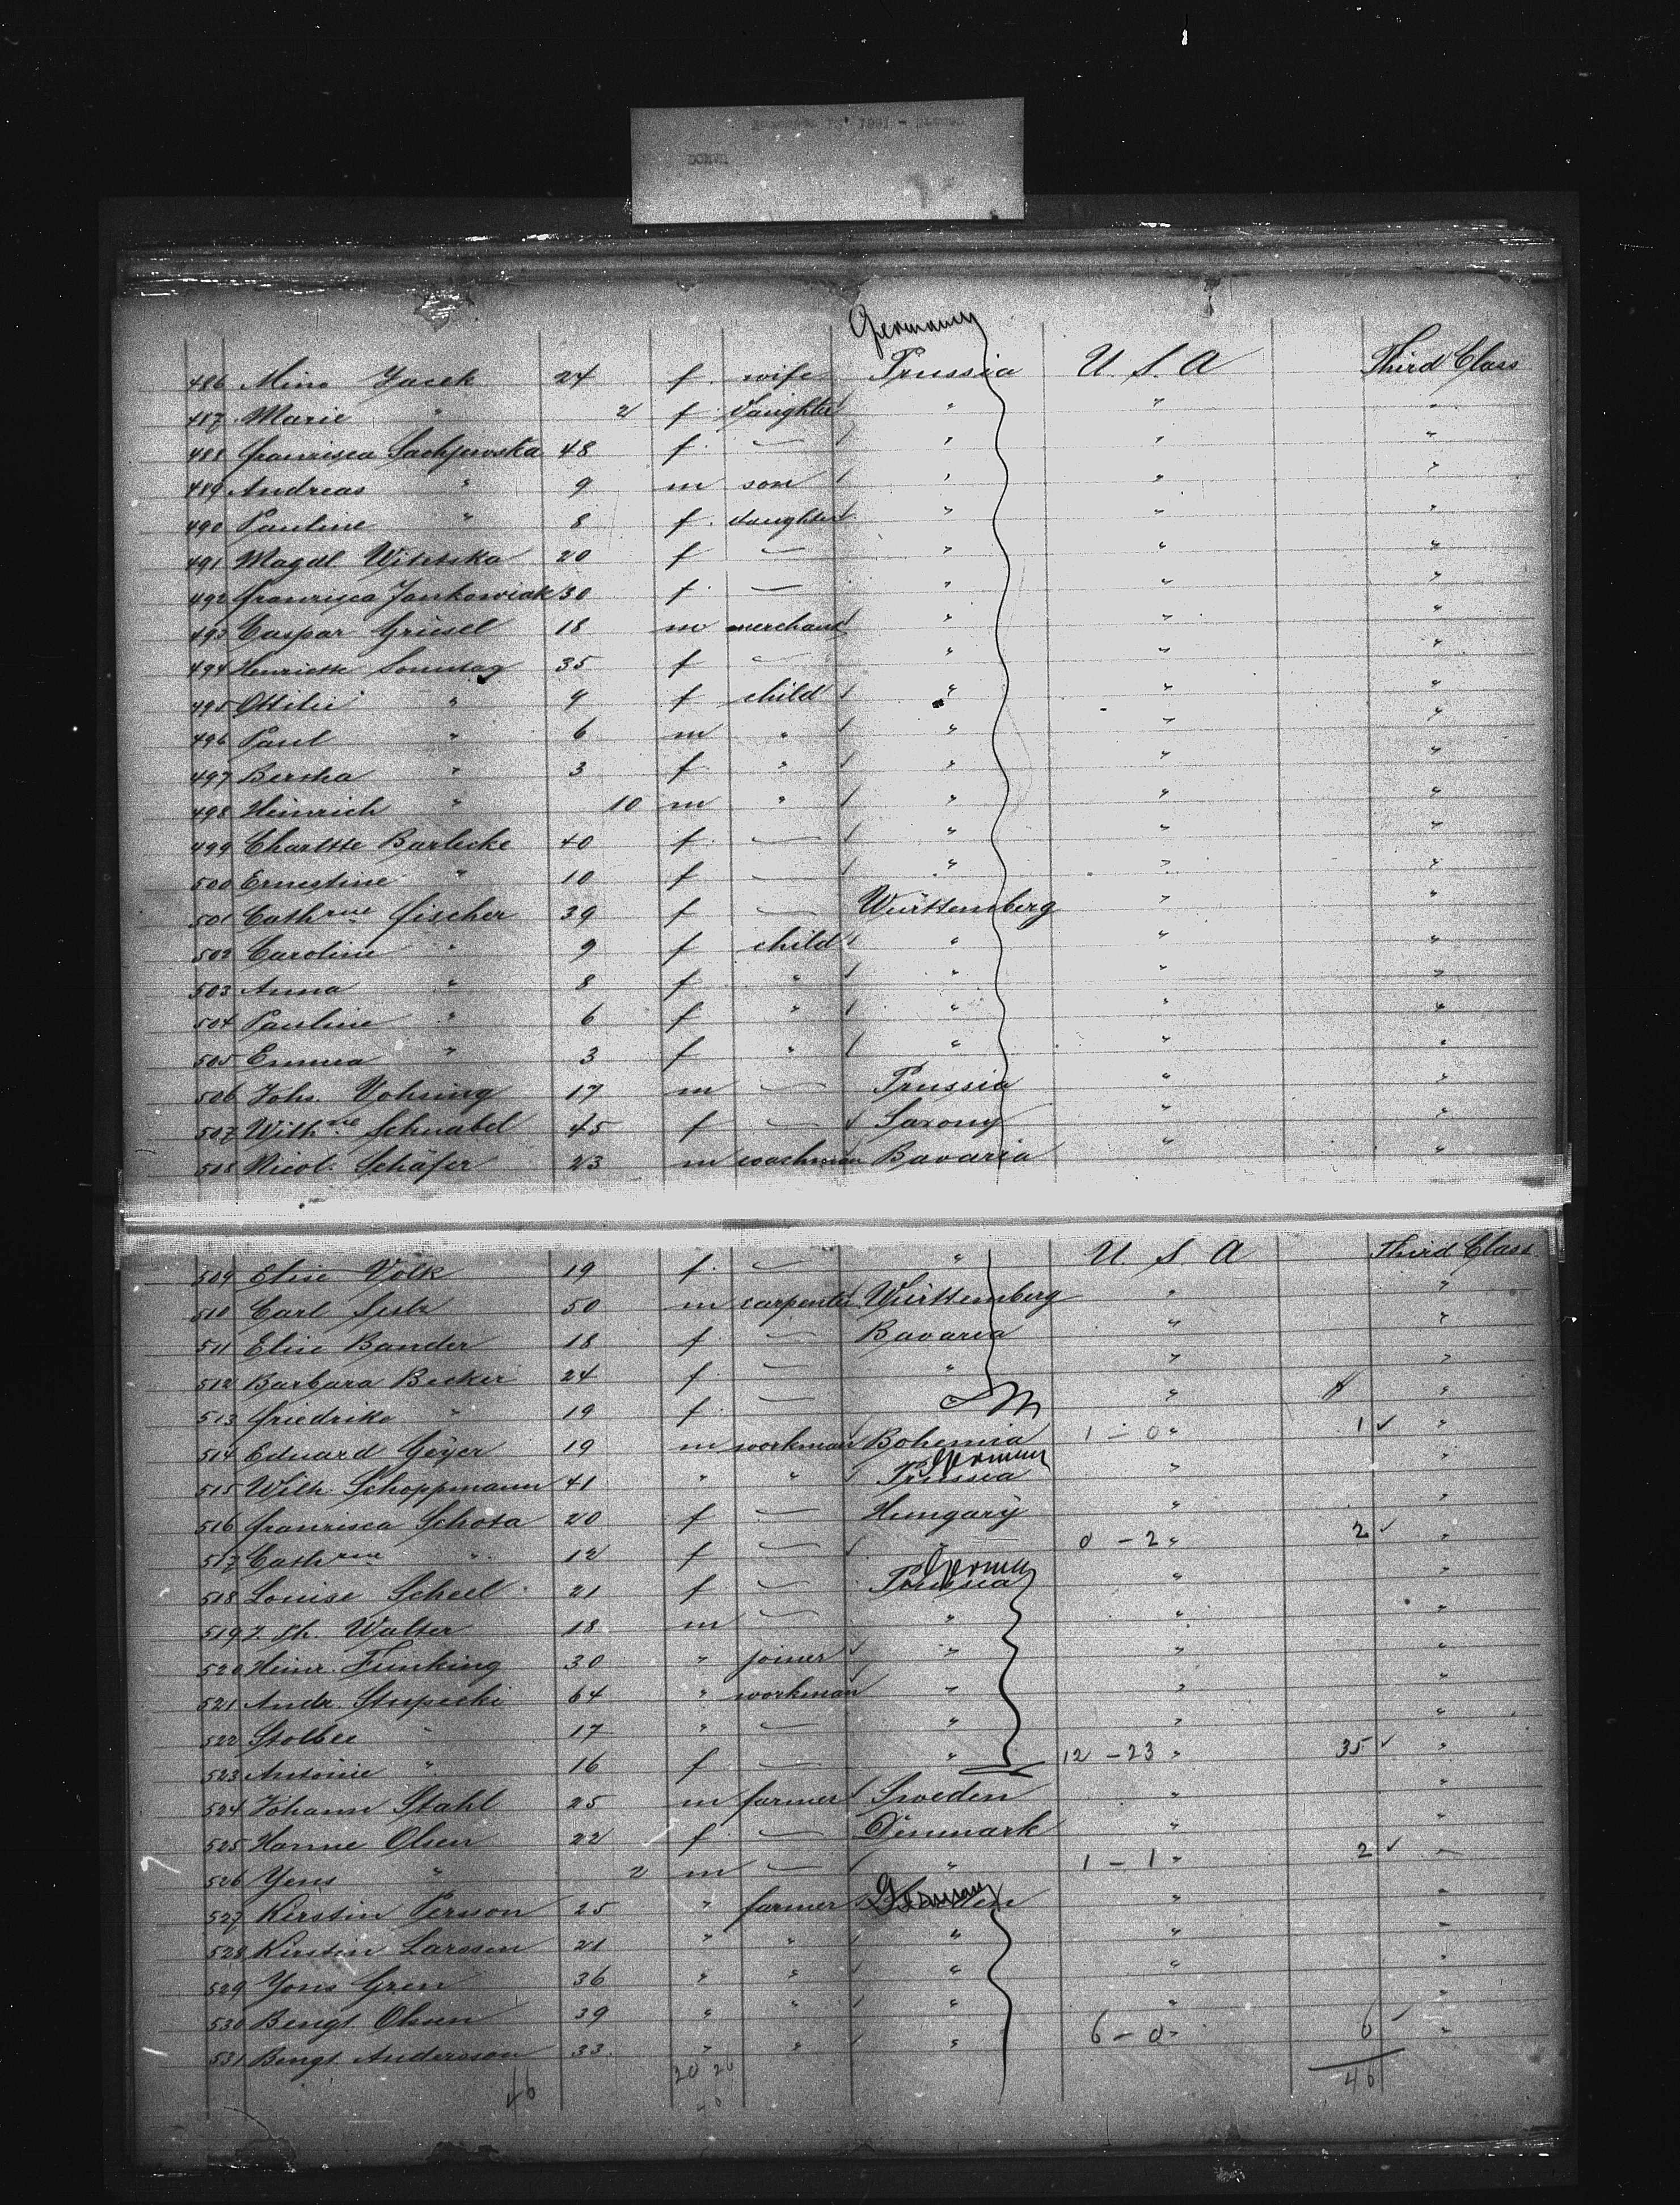 DONAU
Germany
486 Mine Jacek 24 f. wife Prussia U. S. A Third Class
487 Marie " 2 f daughter " " "
488 Francisca 48 f. — " " "
489 Andreas " 9 m son " " "
490 Pauline " 8 f. daughter " " "
491 Magdl. 20 f — " " "
492 Francisca Jankowiak 30 f. — " " "
493 Caspar Griesel 18 m merchant " " "
494 Henriette Sonntag 35 f — " " "
495 Ottilie " 9 f child " " "
496 Paul " 6 m " " " "
497 Bertha " 3 f " " " "
498 Heinrich " 10 m " " " "
499 Charltte Barlecke 40 f. — " " "
500 Ernestine " 10 f — " " "
501 Cathrine Fischer 39 f — Württemberg " "
502 Caroline " 9 f child " " "
503 Anna " 8 f " " " "
504 Pauline " 6 f " " " "
505 Emma " 3 f " " " "
506 Johs. Vohsing 17 m — Prussia " "
507 Wilhne Schnabel 45 f — Saxony " "
508 Nicol. Schäfer 23 m coachman Bavaria " "
509 Elise Volk 19 f. — " U. S. A Third Class
510 Carl 50 m carpenter Württemberg " "
511 Elise Bander 18 f. — Bavaria " "
512 Barbara Becker 24 f. — " " "
513 Friedrike " 19 f. — " "
514 Eduard Geyer 19 m workman Bohemia 1 – 0 " 1 ✓ "
German
515 Wilh. Schoppmann 41 " " Prussia " "
516 Francisca Schota 20 f — Hungary " "
517 Cathrine " 12 f — " 0 – 2 " 2 ✓ "
German
518 Louise Scheel 21 f. — Prussia " "
519 J. Ph. Walter 18 m — " " "
520 Heinr. Funking 30 " joiner " " "
521 Andr. Stupecki 64 " workman " " "
522 Stolbee " 17 " — " " "
523 Antonie " 16 f — " 12 – 23 " 35 ✓ "
524 Johann Stahl 25 m farmer Sweden " "
525 Hanne Olsen 22 f. — Denmark " "
526 Yens " 2 m — " 1 – 1 " 2 ✓ "
527 Kerstin Persson 25 " farmer Germany " "
528 Kerstin Larssen 21 " " " " "
529 Yons Gren 36 " " " " "
530 Bengt Olsson 39 " " " " "
531 Bengt Andersson 33 " " " 6 – 0 " 6 ✓ "
46 20 26 46